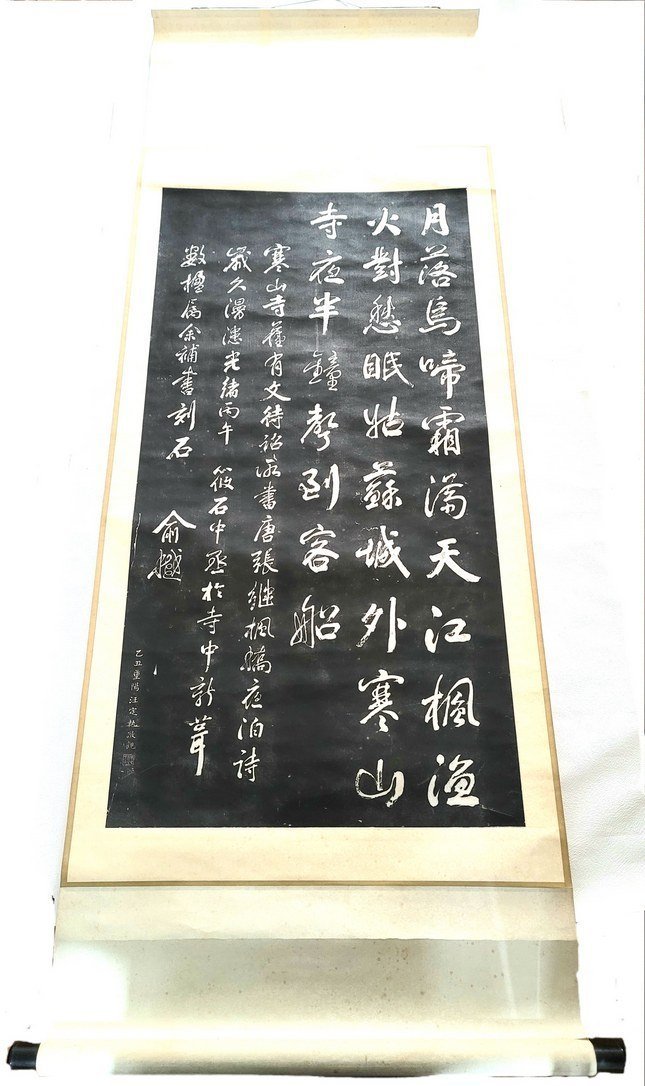 月落烏啼霜滿天江楓漁
火對愁眠姑蘇城外寒山
寺夜半鐘聲到客船
寒山寺舊有文待詔所書唐張繼楓橋夜泊詩
歲久漫漶光緒丙午 筱石中丞於寺中新葺
數楹屬余補書刻石
俞樾
乙丑重陽